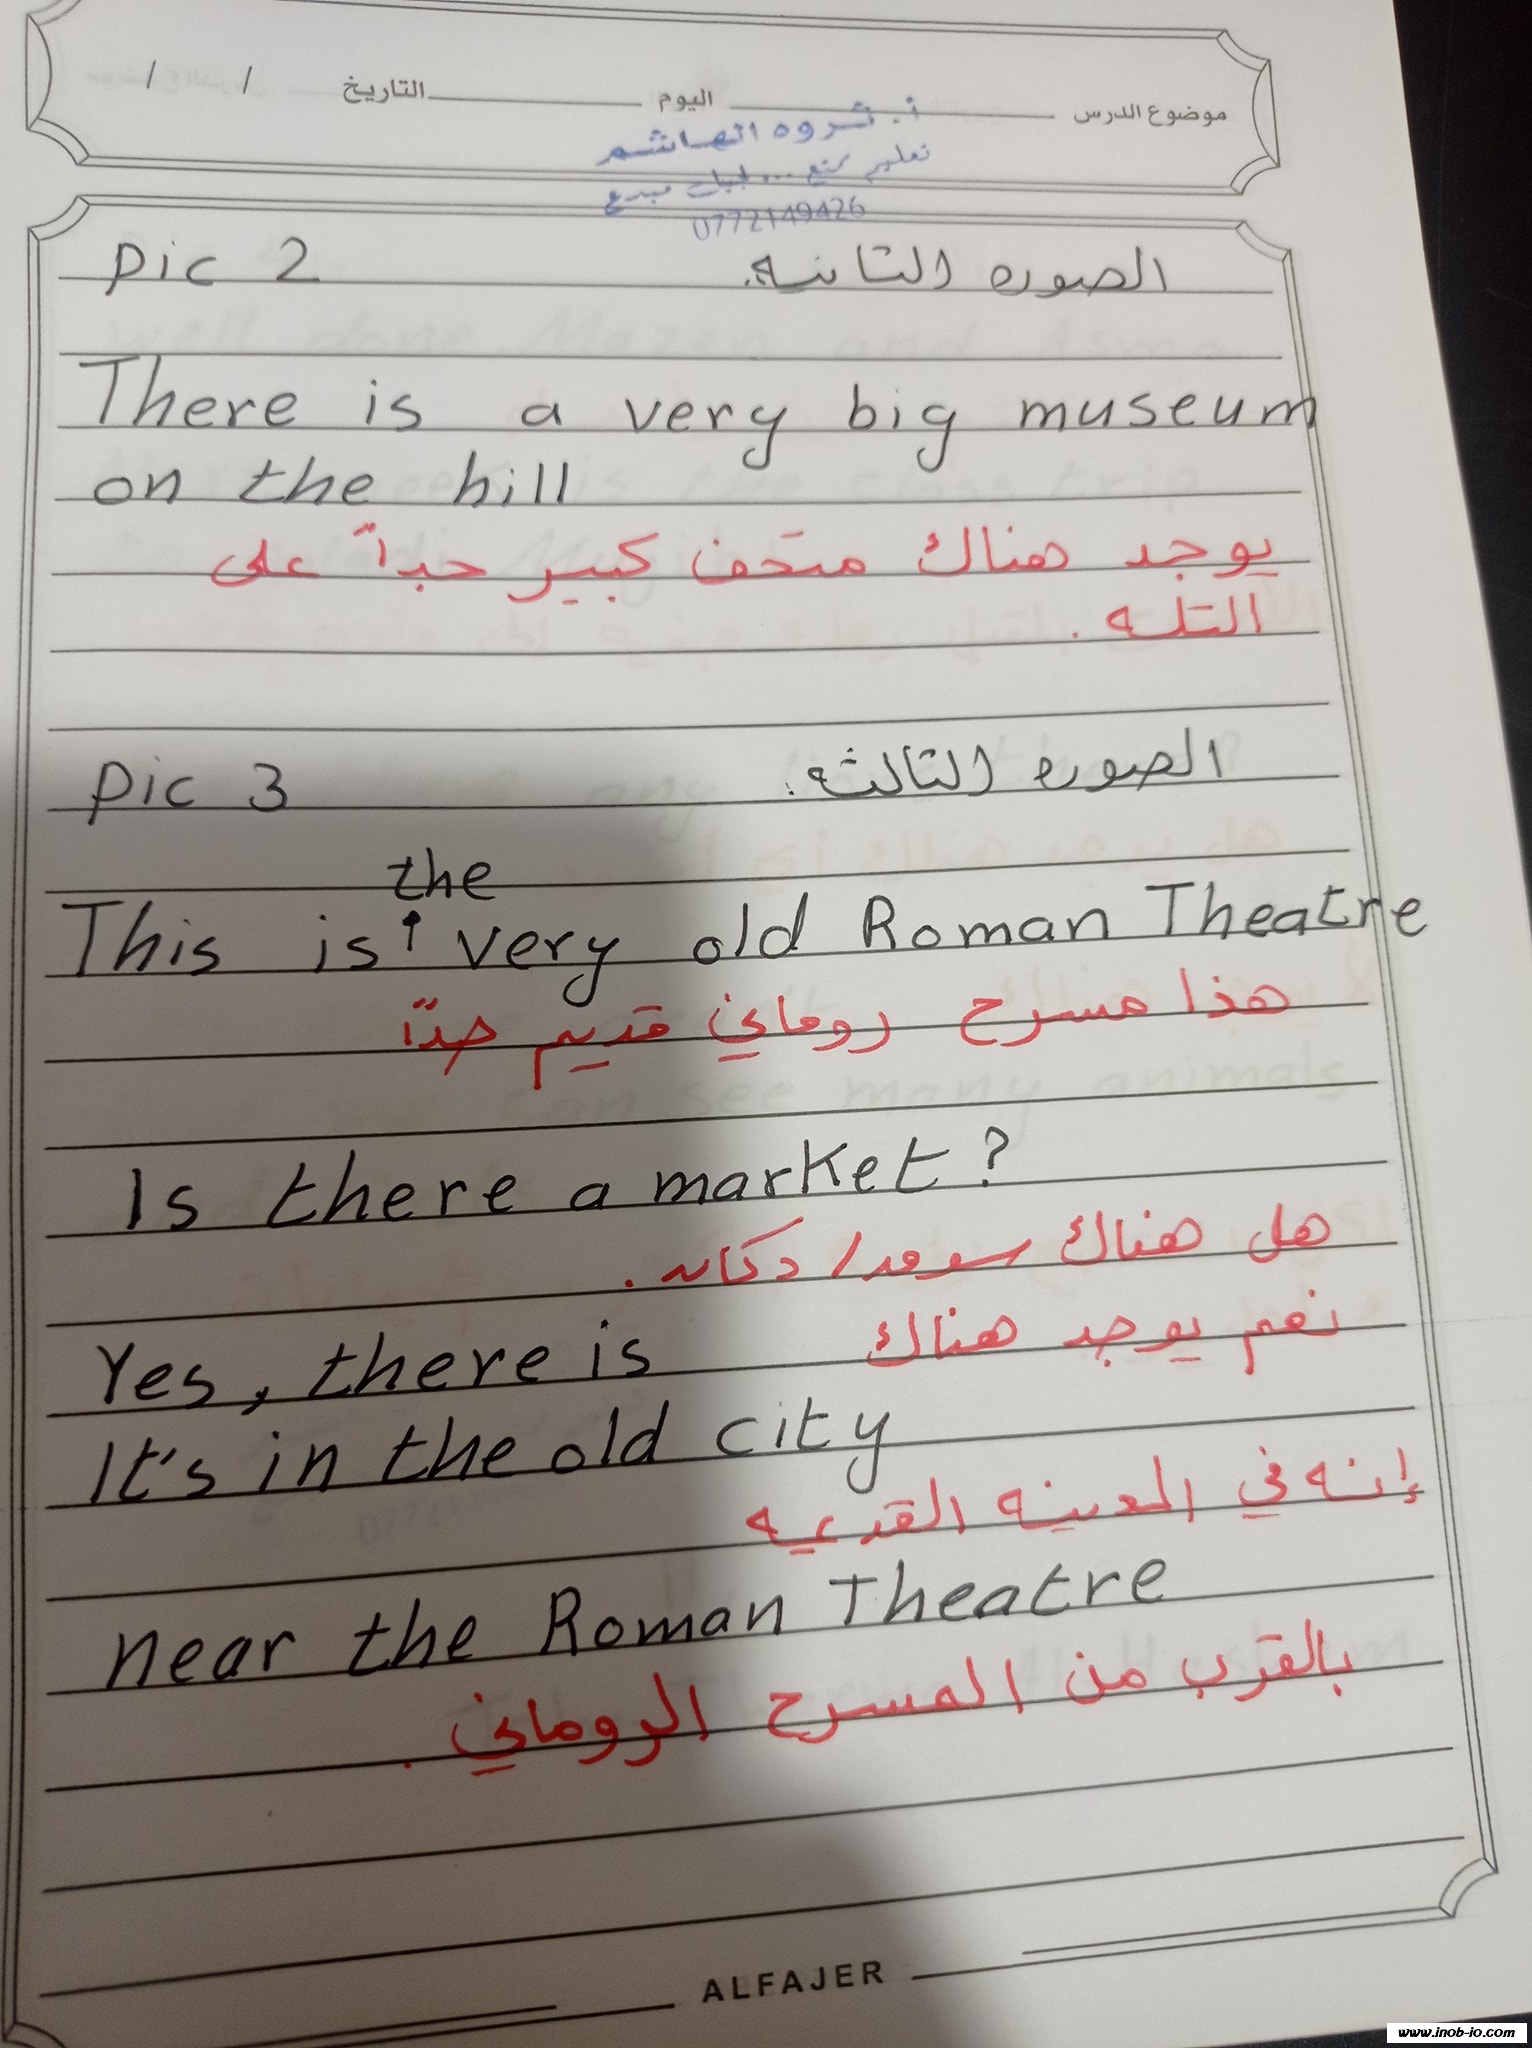 موضوع الدرس اليوم التاريخ / /
أ. ثروه الهاشم
تعليم ممتع ... لجيل مبدع
0772149426
pic 2 الصوره الثانيه.
There is a very big museum
on the hill
يوجد هناك متحف كبير جداً على
التله .
pic 3 الصوره الثالثه.
the
This is very old Roman Theatre
هذا مسرح روماني قديم جدًا
Is there a market?
هل هناك سوق / دكان .
Yes, there is نعم يوجد هناك
It's in the old city
إنه في المدينه القديمه
near the Roman Theatre
بالقرب من المسرح الروماني .
ALFAJER
www.inob-io.com